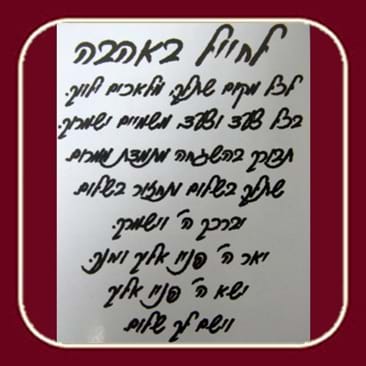 לחייל באהבה
לכל מקום שתלך, מלאכים ילווך.
בכל צעד וצעד משמיים ישמרוך.
תבורך בהשגחה מתמדת ממרום.
שתלך בשלום ותחזור בשלום.
יברכך ה' וישמרך.
יאר ה' פניו אליך ויחנך.
ישא ה' פניו אליך
וישם לך שלום.